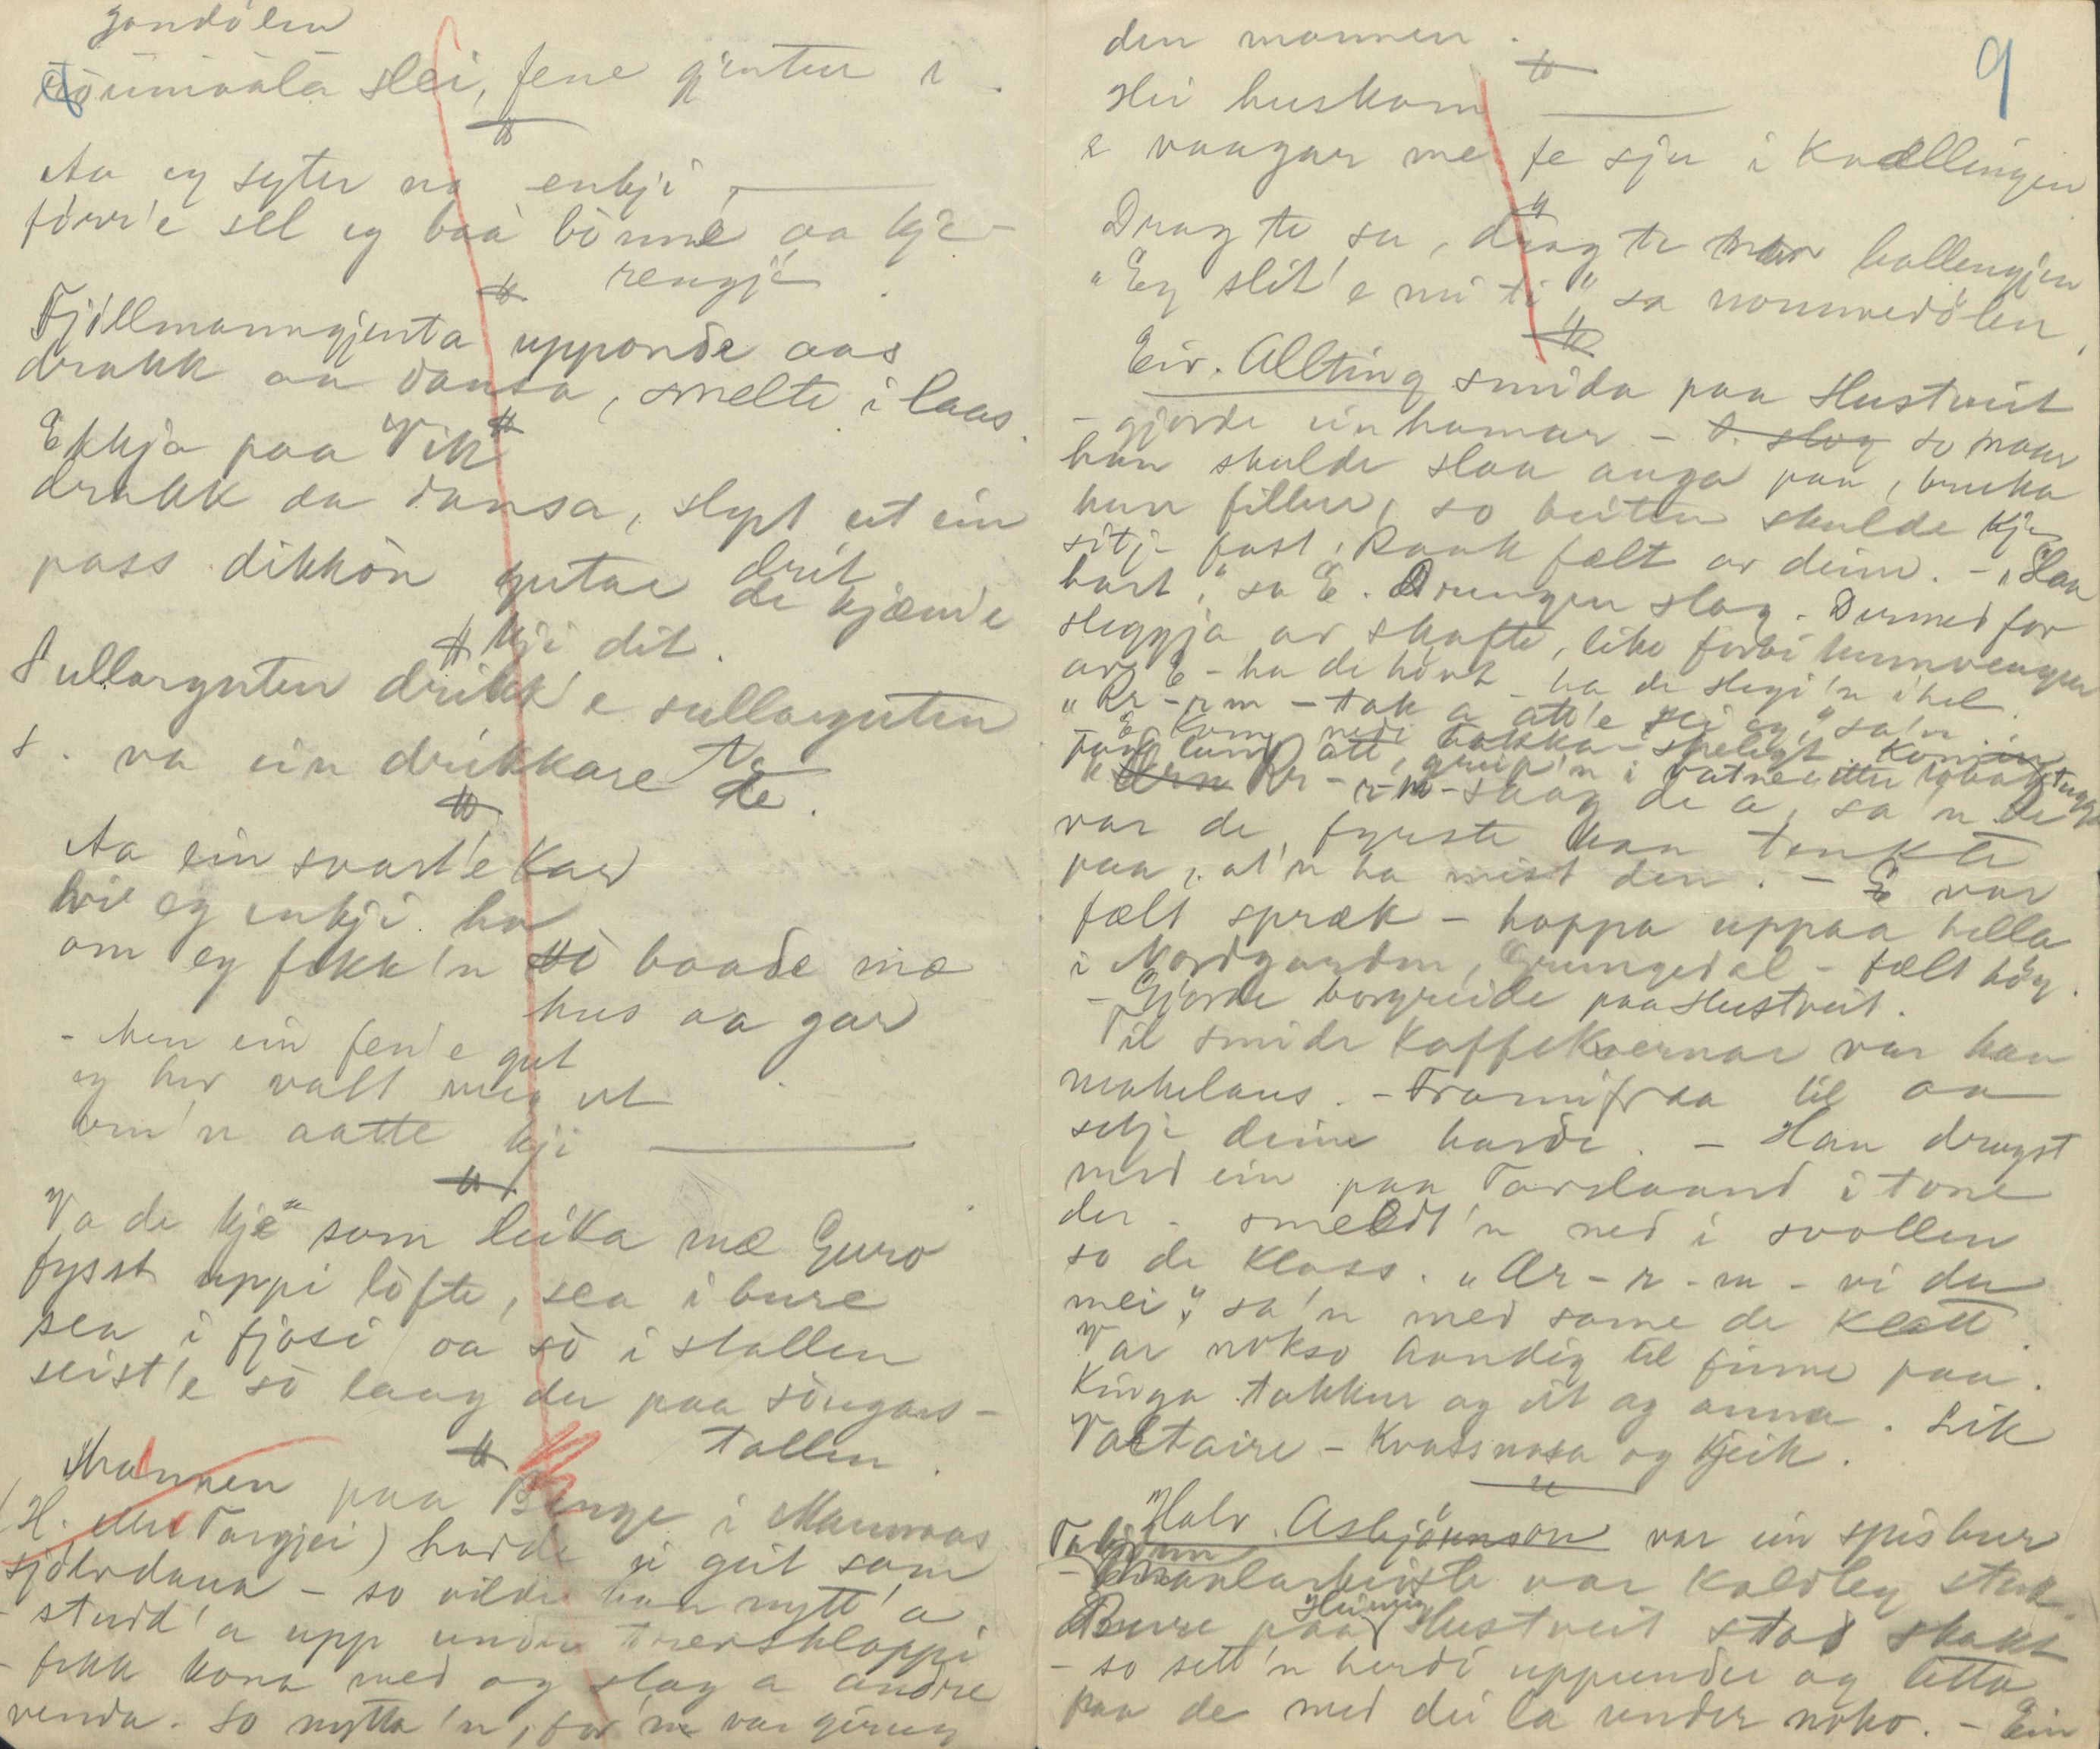 gondölen
slei, fene gjentur i
Aa eg syter no enkji
förr'e sel eg baà bönné aa kje-
rengji.
Fjöllmanngjenta upponde aas
drakk aa dansa, smelte i laas.
Ekkja paa Vik
drakk aa dansa, slept ut ein
drit
pass dikkòn gutar de kjæm'e
kji dit.
Sullarguten drikk'e sullarguten
s. va ein drikkare te.
Aa ein svart'e kar
vil eg enkji ha
om eg fekk'n sò baade mæ
hus aa gar
- Men ein fen'e gut
eg hev valt meg ut
om'n aatte kji
Va de kje som leika mæ Guro
fysst uppi lofte, sea i bure
sea i fjosi aa sò i stallen
seist'e sò laag du paa söugars-
tallen.
Mannen paa Benge i Mannaas
(H. eller Targjei) hadde ei geit som
sjölvdaua - so vilde han nytt'a
- studd'a upp under tverskloppi
- fekk kona med og slog a andre
venda. So nytta'n, for'n var gjerug
9
den mannen.
Hei huskom
e vaagar me fe sju i Kvællingen
Drag te su, drag te hallengjen
"Eg slit'e mi ti" sa nommedölen,
Eiv. Allting smida paa Hustveit
- gjorde ein hamar - so naar
han skulde slaa auga paa, bruka
han filler, so beiten skulde kje
sitja fast. Raak fælt av deim. - "Slaa
hart," sa E. Drengen slog. Dermed for
sleggja av skafte, like forbi tunnvengen
av E - ha de hövt - ha de slegi'n ihel.
"Rr-r-m - tak a att'e sei eg," sa'n.
E. kom nedi
greip'n i vatne etter tobakstugga
Rr-r-m - slaag de a, sa'n de
var de fyrste han tenkte
paa, at'n ha mist den. - E var
fælt spræk - hoppa uppaa hella
i Nordgarden, Grungedal - fælt høg.
- Gjorde borgreide paa Hustveit.
Til smide kaffikvernar var han
makelaus. - Framifraa til aa
setje deim hardi. - Han drogst
med ein paa Tardlaand i tone
der - smeldt'n ned i svollen
so de klass. "Ar-r-m - vi du
mei," sa'n med same de klatt.
Var nokso hondig til finne paa.
Kinga takkur og eit og anna. Lik
Voltaire - Kvassnasa og kjeik.
Halv. Asbjörnson var ein spisbur
var kaldleg sterk.
Bure paa Heimre Hustveit stod skakt
- so sett'n herdi uppunder og letta
paa de med dei la under noko. - Ein